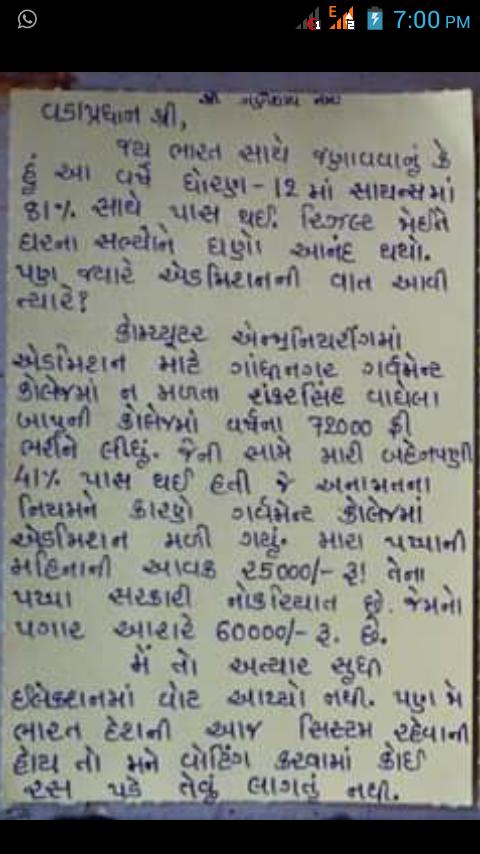 E
7:00 PM
શ્રી ગણેશાય નમઃ
વડાપ્રધાન શ્રી,
જય ભારત સાથે જણાવવાનું કે
હું આ વર્ષે ધોરણ-12 માં સાયન્સમાં
81% સાથે પાસ થઈ. રિઝલ્ટ જોઈને
ઘરના સભ્યોને ઘણો આનંદ થયો.
પણ જ્યારે એડમિશનની વાત આવી
ત્યારે?
કોમ્પ્યુટર એન્જીનિયરીંગમાં
એડમિશન માટે ગાંધીનગર ગર્વમેન્ટ
કોલેજમાં ન મળતા શંકરસિંહ વાઘેલા
બાપુની કોલેજમાં વર્ષના 72000 ફી
ભરીને લીધું. જેની સામે મારી બહેનપણી
41% પાસ થઈ હતી જે અનામતના
નિયમને કારણે ગર્વમેન્ટ કોલેજમાં
એડમિશન મળી ગયું. મારા પપ્પાની
મહિનાની આવક 25000/- રૂ! તેના
પપ્પા સરકારી નોકરિયાત છે. જેમનો
પગાર આશરે 60000/- રૂ. છે.
મેં તો અત્યાર સુધી
ઈલેક્શનમાં વોટ આપ્યો નથી. પણ જો
ભારત દેશની આજ સિસ્ટમ રહેવાની
હોય તો મને વોટિંગ કરવામાં કોઈ
રસ પડે તેવું લાગતું નથી.